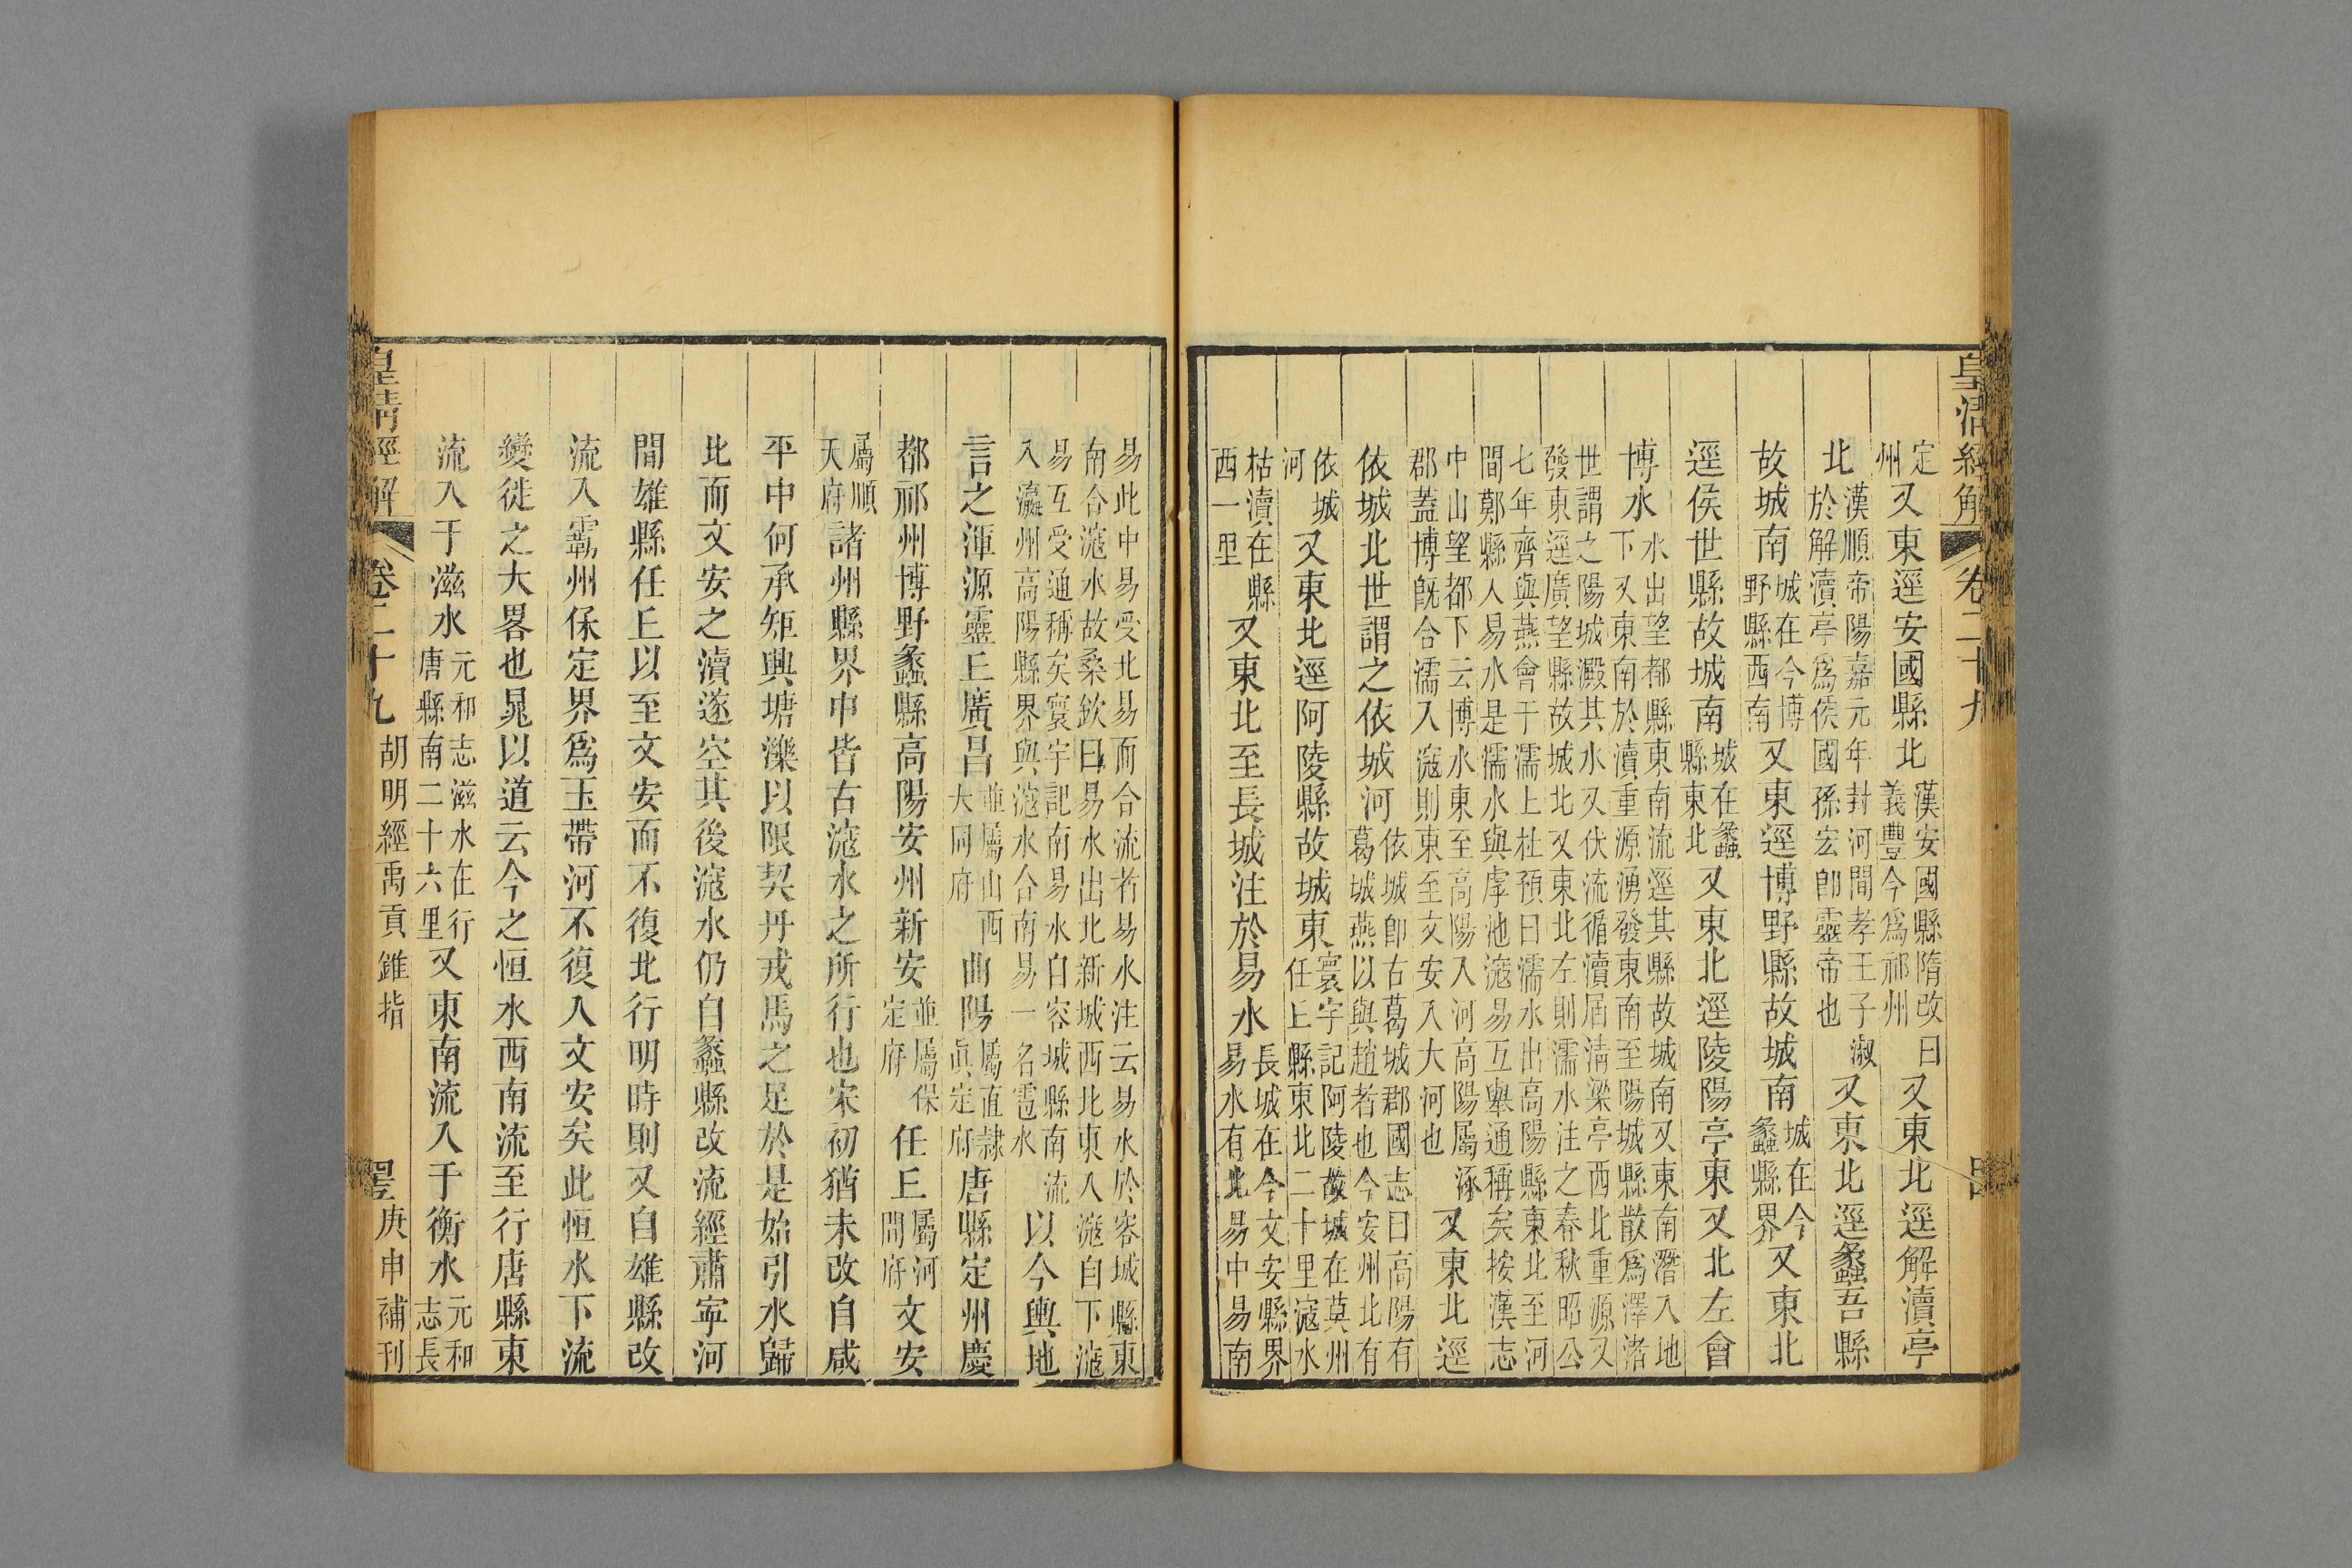 皇清經解 卷二十九
定州又東逕安國縣北漢安國縣隋改曰義豐今爲祁州又東北逕解瀆亭
北漢順帝陽嘉元年封河間孝王子淑於解瀆亭爲侯國孫宏卽靈帝也又東北逕蠡吾縣
故城南城在今博野縣西南又東逕博野縣故城南城在今蠡縣界又東北
逕侯世縣故城南城在蠡縣東北又東北逕陵陽亭東又北左會
博水水出望都縣東南流逕其縣故城南又東南潛入地下又東南於瀆重源湧發東南至陽城縣散爲澤渚
世謂之陽城澱其水又伏流循瀆届清梁亭西北重源又發東逕廣望縣故城北又東北左則濡水注之春秋昭公
七年齊與燕會于濡上杜預曰濡水出高陽縣東北至河間鄚縣入易水是濡水與虖池滱易互舉通稱矣按漢志
中山望都下云博水東至高陽入河高陽屬涿郡蓋博旣合濡入滱則東至文安入大河也又東北逕
依城北世謂之依城河依城卽古葛城郡國志曰高陽有葛城燕以與趙者也今安州北有
依城河又東北逕阿陵縣故城東寰宇記阿陵故城在莫州任丘縣東北二十里滱水
枯瀆在縣西一里又東北至長城注於易水長城在今文安縣界易水有北易中易南
易此中易受北易而合流者易水注云易水於容城縣東南合滱水故桑欽曰易水出北新城西北東入滱自下滱
易互受通稱矣寰宇記南易水自容城縣南流入瀛州高陽縣界與滱水合南易一名雹水以今輿地
言之渾源靈丘廣昌並屬山西大同府曲陽屬直隸眞定府唐縣定州慶
都祁州博野蠡縣高陽安州新安並屬保定府任丘屬河間府文安
屬順天府諸州縣界中皆古滱水之所行也宋初猶未改自咸
平中何承矩興塘濼以限契丹戎馬之足於是始引水歸
北而文安之瀆遂空其後滱水仍自蠡縣改流經肅寧河
間雄縣任丘以至文安而不復北行明時則又自雄縣改
流入霸州保定界爲玉帶河不復入文安矣此恒水下流
變徙之大畧也晁以道云今之恒水西南流至行唐縣東
流入于滋水元和志滋水在行唐縣南二十六里又東南流入于衡水元和志長
皇清經解 卷二十九 胡明經禹貢錐指 庚申補刊